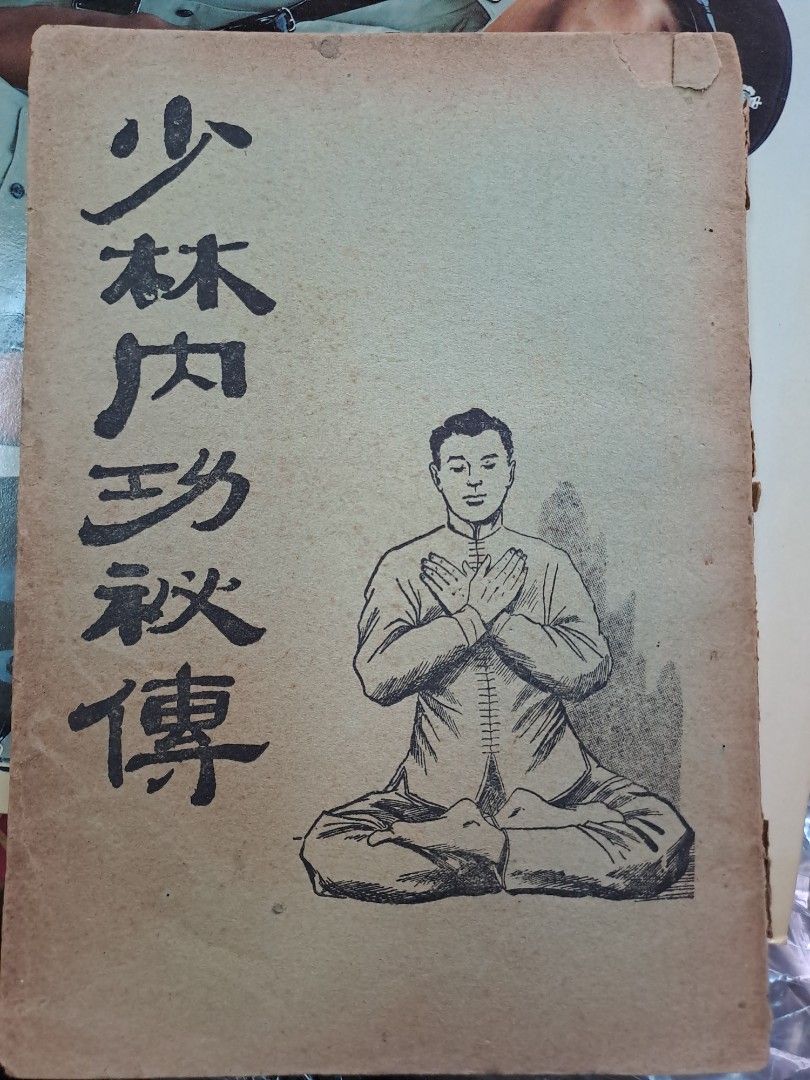 少林内功祕傳